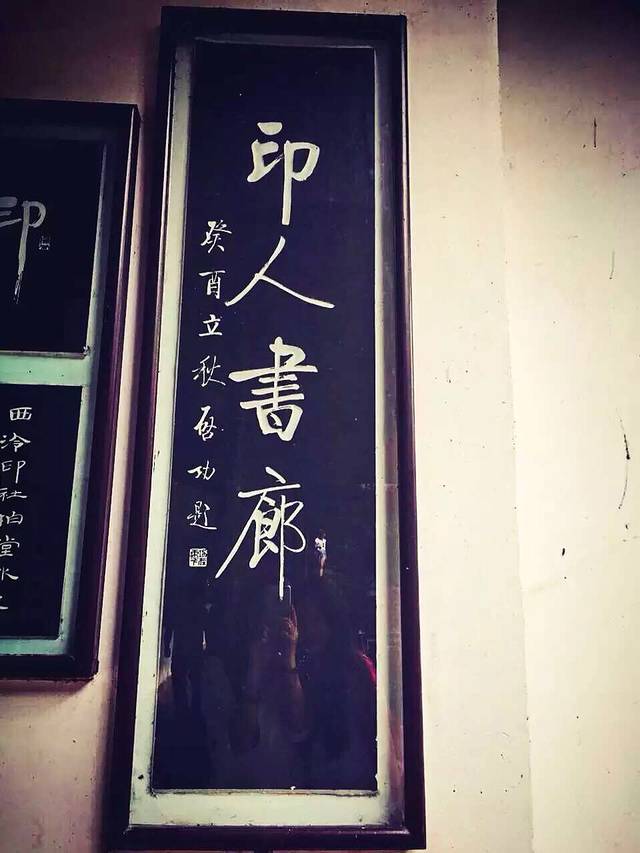 印人書廊
癸酉立秋启功题
印
西泠印社柏堂